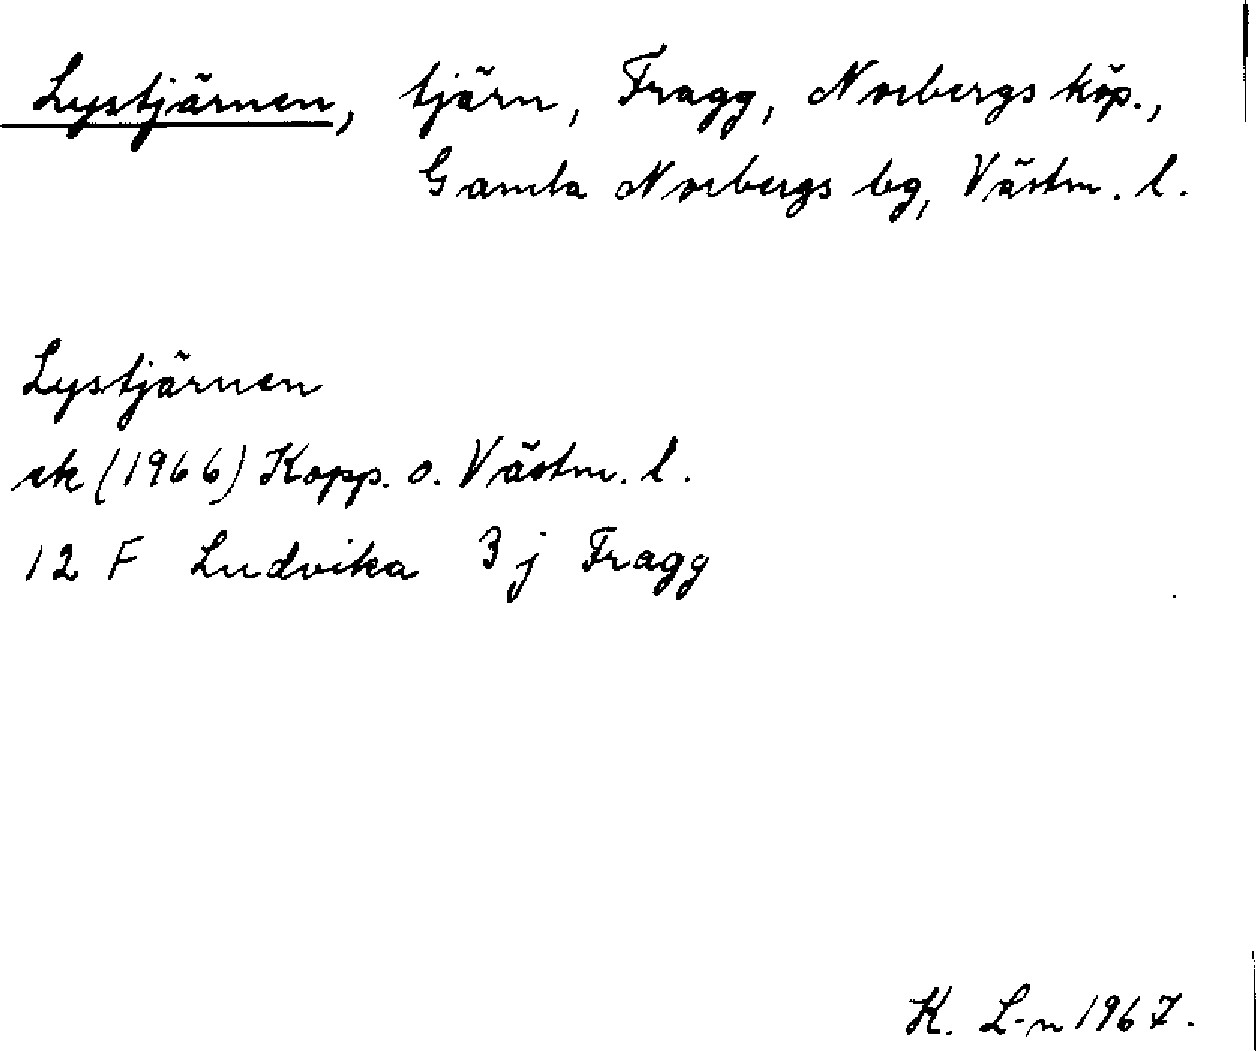 Lystjärnen, tjärn, Fragg, Norbergs köp.,
Gamla Norbergs bg, Västm. l.
Lystjärnen
ek (1966) Kopp. o. Västm. l.
12 F Ludvika 3 j Fragg
K. L-n 1967.